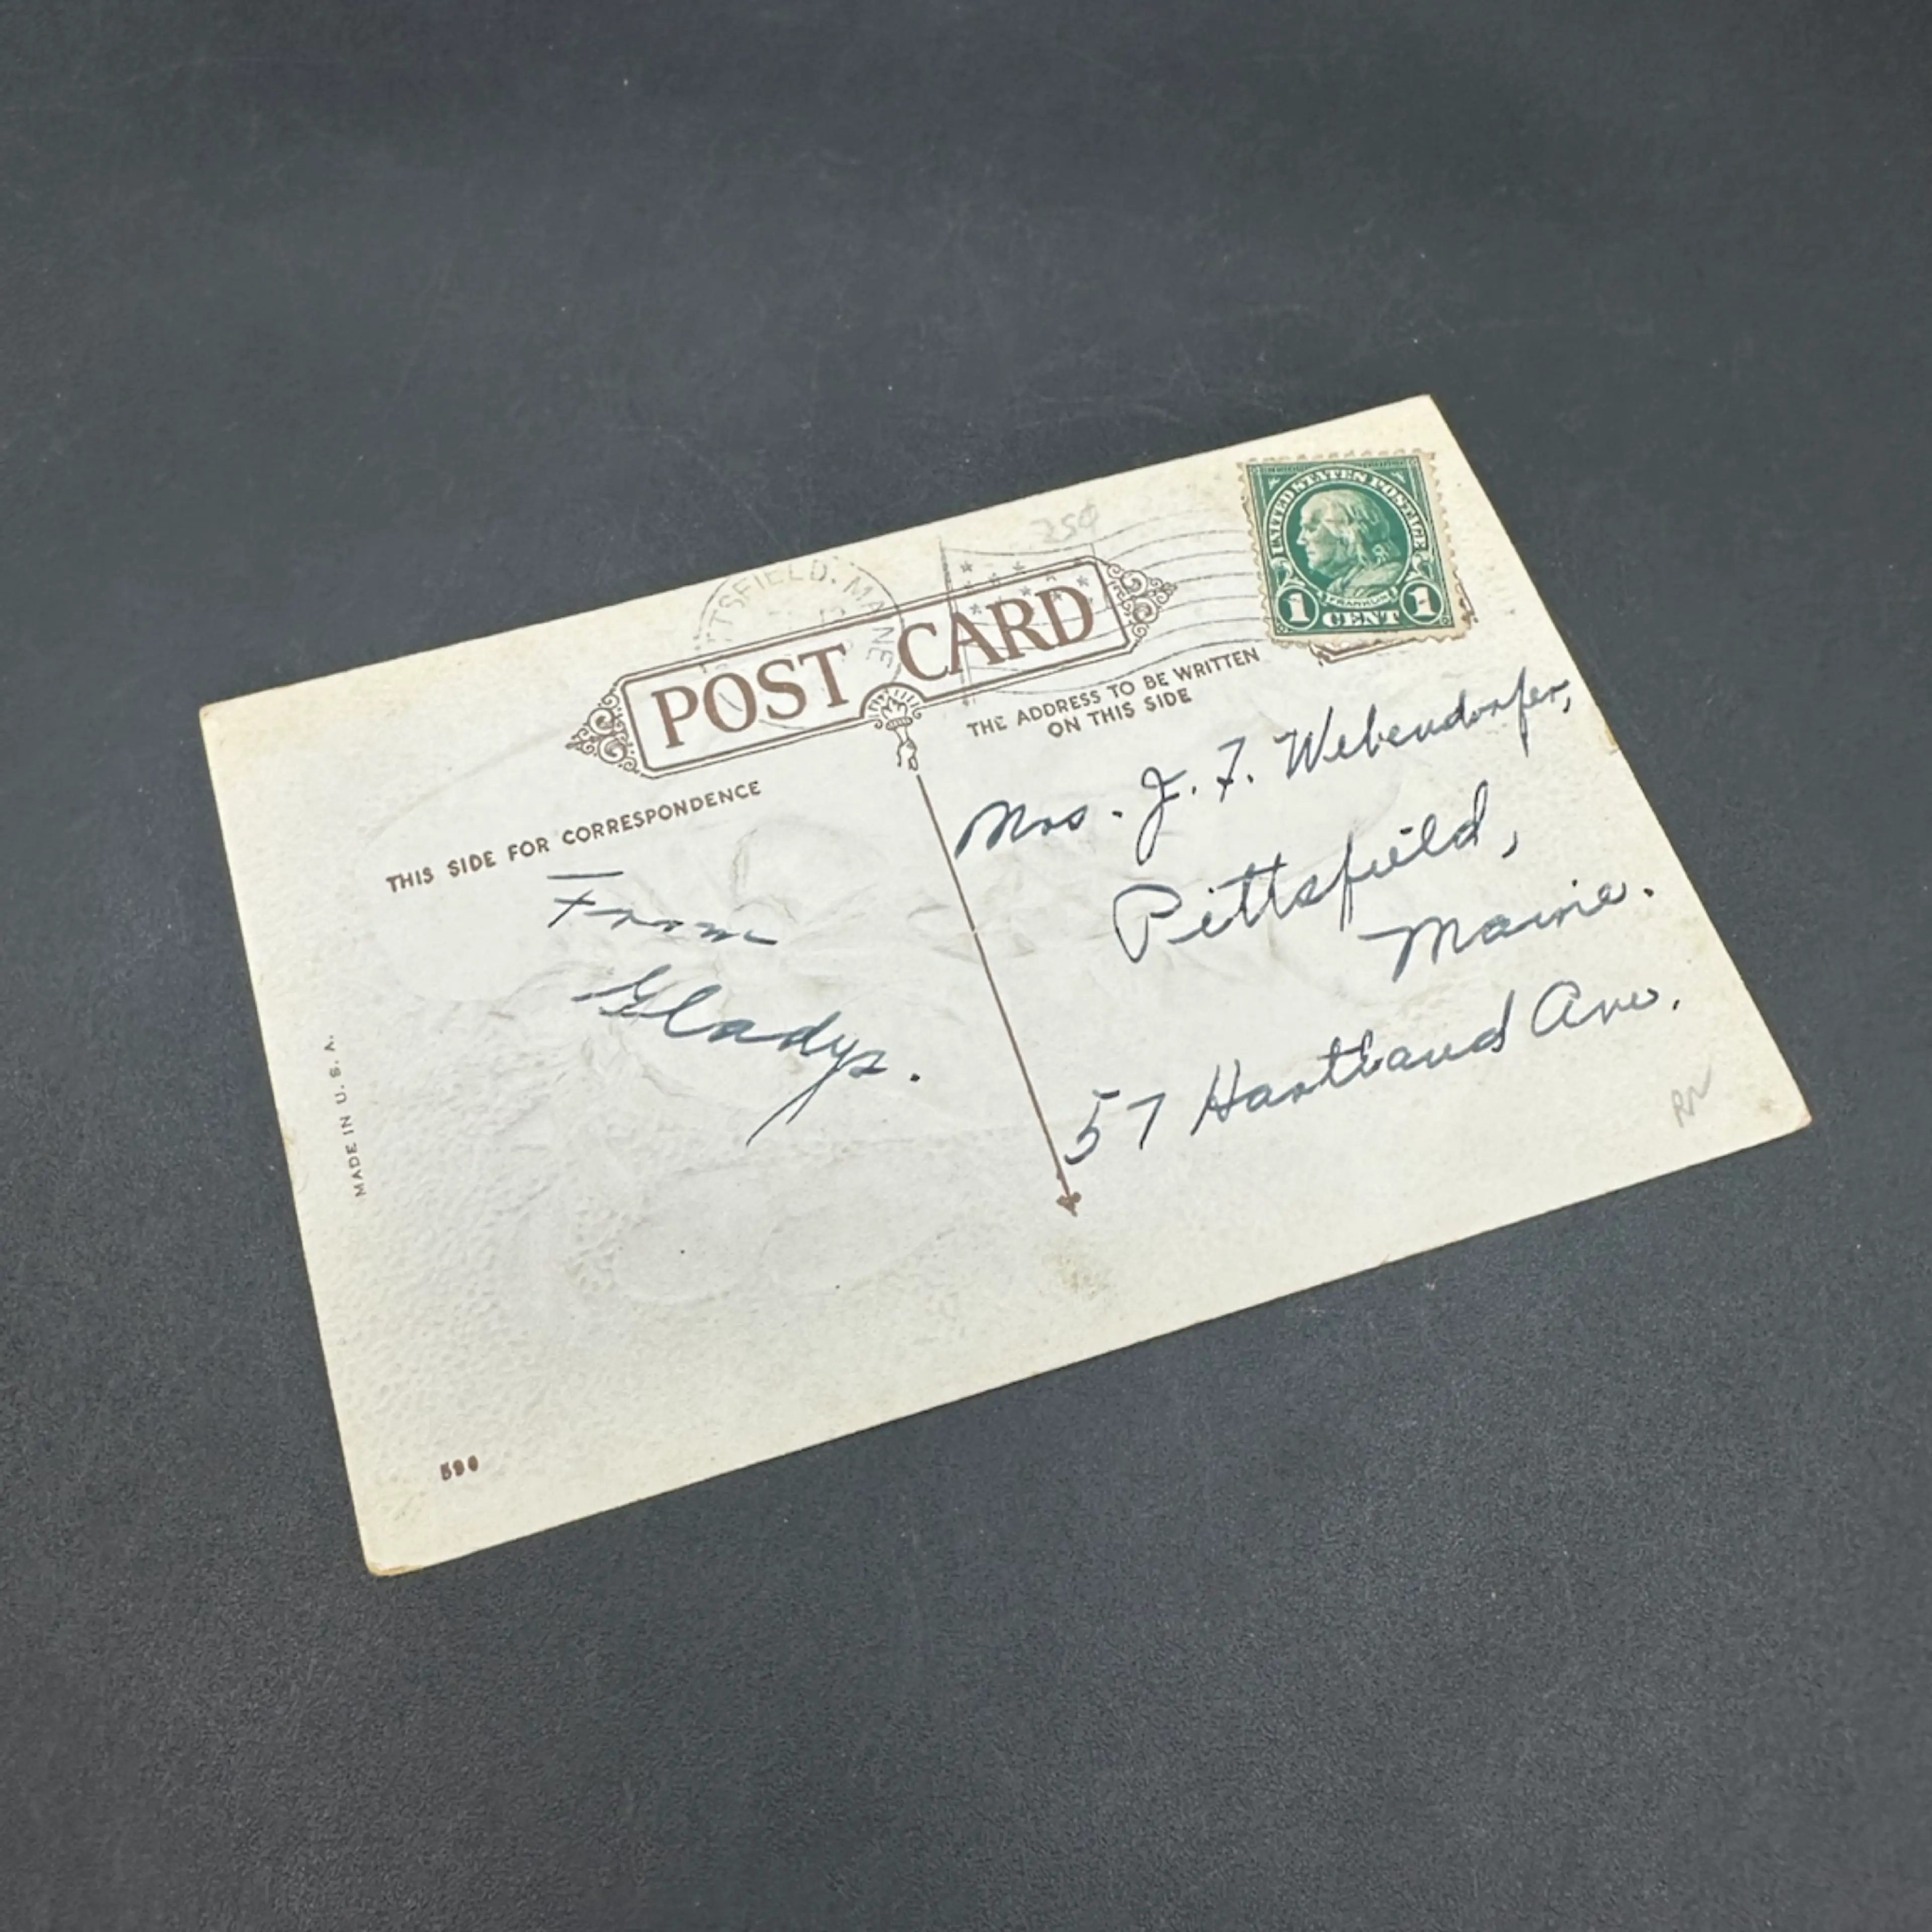 250
TTSFIELD. MAINE
POST CARD
UNITED STATES POSTAGE
FRANKLIN
1 CENT 1
THIS SIDE FOR CORRESPONDENCE
THE ADDRESS TO BE WRITTEN
ON THIS SIDE
From
Gladys.
Mrs. J. F. Webendorfer,
Pittsfield,
Maine.
57 Hartland Ave.
MADE IN U. S. A.